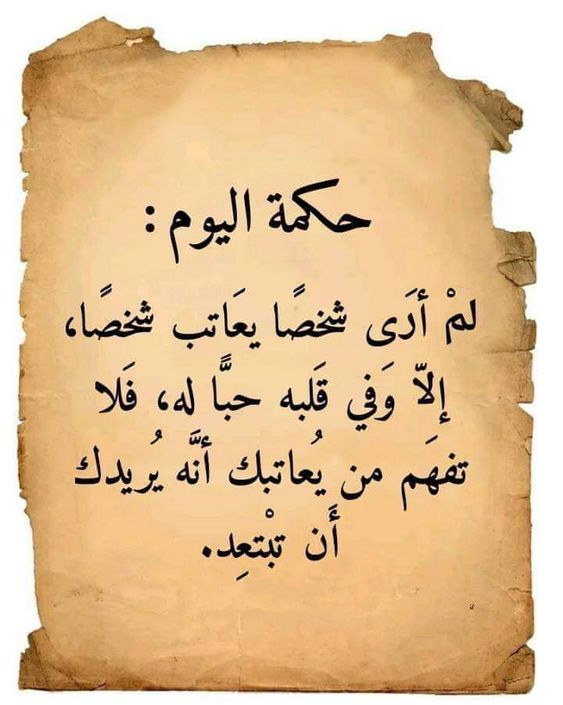 حكمة اليوم :
لمْ أرَى شخصًا يعَاتب شخصًا،
إلاّ وَفي قَلبه حبًّا له، فَلا
تفهَم من يُعاتبك أنَّه يُريدك
أَن تبْتعِد.